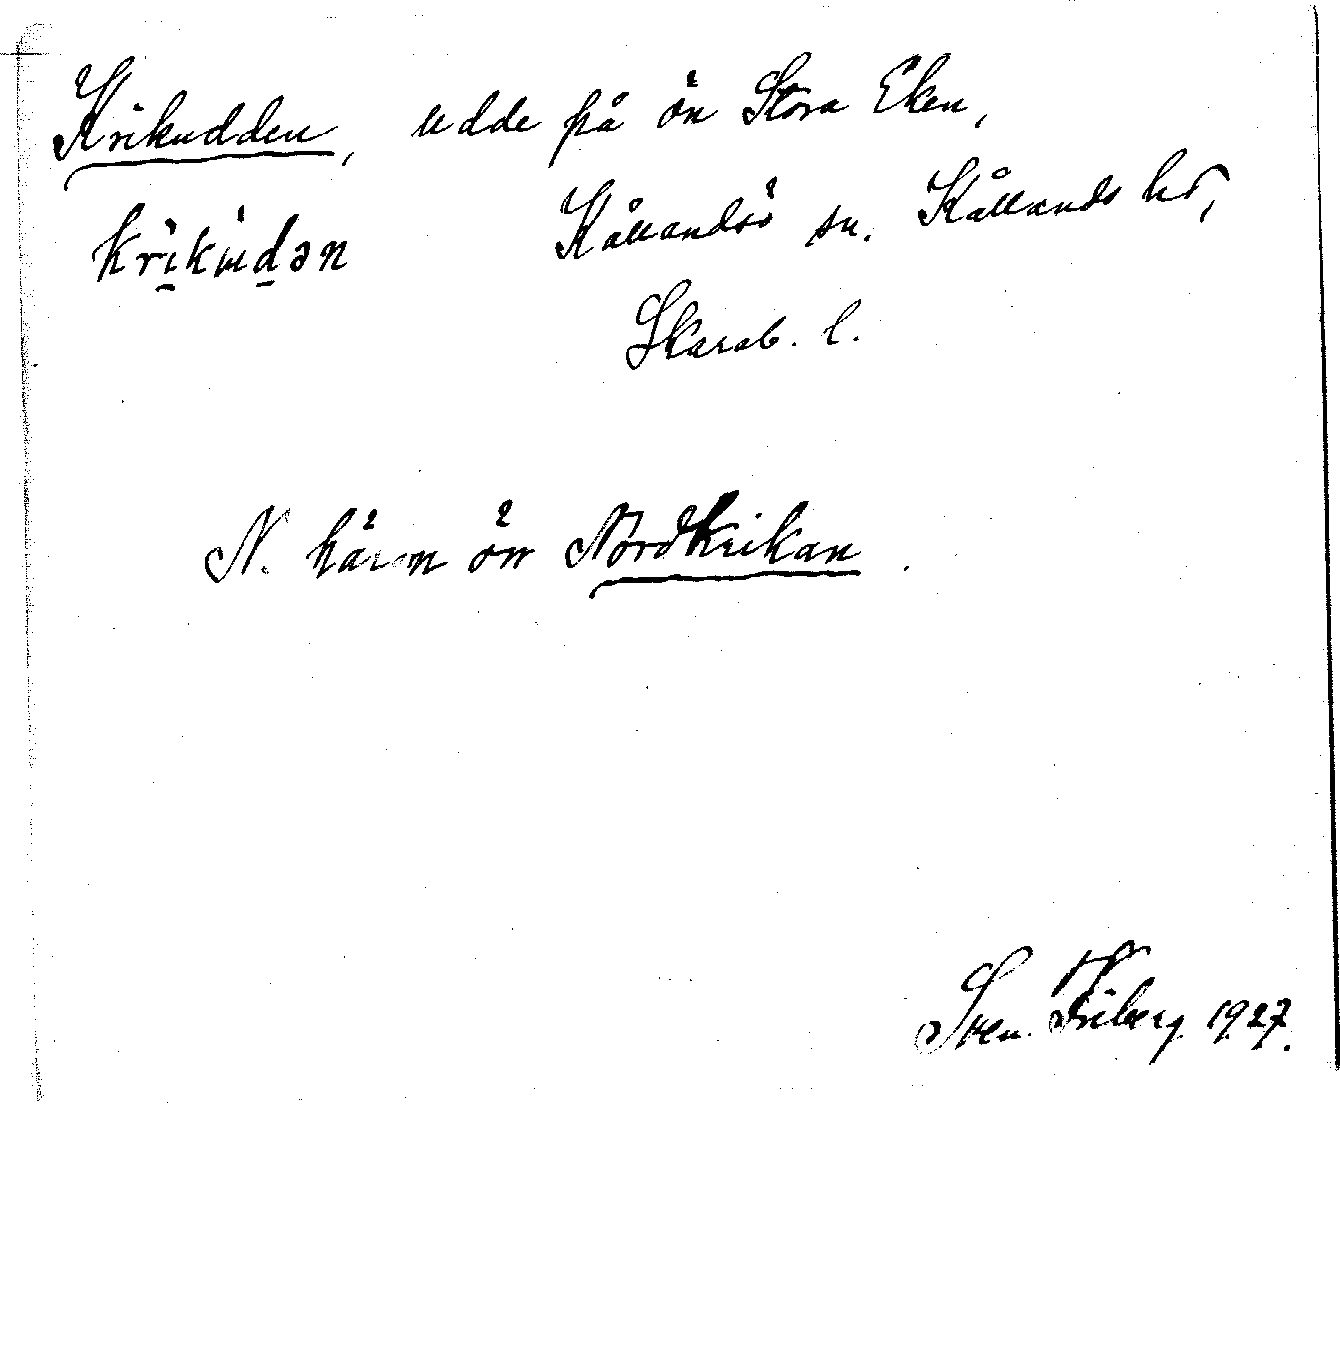 Krikudden, udde på ön Stora Eken,
Kållandsö sn. Kållands hd,
Skarab. l.
N. härom ön Nordkrikan.
Sven Friberg 1927.